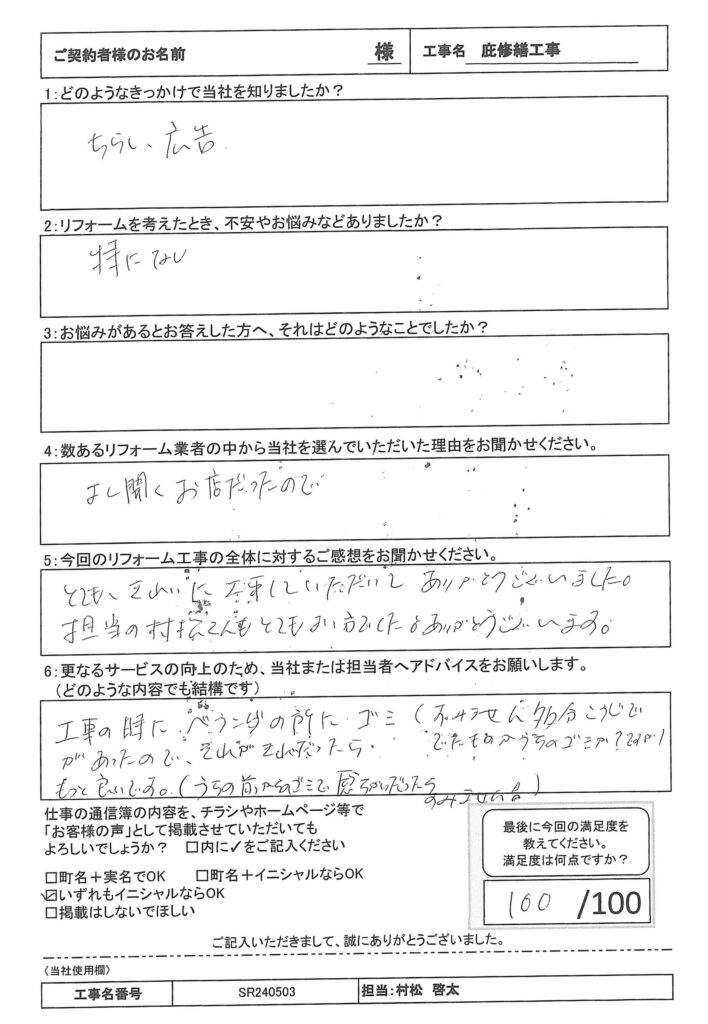 ご契約者様のお名前 様 工事名 庇修繕工事
1:どのようなきっかけで当社を知りましたか？
ちらし、広告.
2:リフォームを考えたとき、不安やお悩みなどありましたか？
特になし
3:お悩みがあるとお答えした方へ、それはどのようなことでしたか？
4:数あるリフォーム業者の中から当社を選んでいただいた理由をお聞かせください。
よし聞くお店だったので
5:今回のリフォーム工事の全体に対するご感想をお聞かせください。
とても、きれいに工事していただいてありがとうございました。
担当の村松さんもとてもよい方でしたありがとうございます。
6:更なるサービスの向上のため、当社または担当者へアドバイスをお願いします。
（どのような内容でも結構です）
工事の時にベランダの所にゴミ(すみません多分こうじで
があったので、それがきれいだったら でたものかうちのゴミか？ですが)
もっと良いです。(うちの前からのゴミで勘ちがいだったら
すみません)
仕事の通信簿の内容を、チラシやホームページ等で
「お客様の声」として掲載させていただいても
よろしいでしょうか？ □内に✓をご記入ください
□町名＋実名でOK □町名＋イニシャルならOK
☑いずれもイニシャルならOK
□掲載はしないでほしい
最後に今回の満足度を
教えてください。
満足度は何点ですか？
100 /100
ご記入いただきまして、誠にありがとうございました。
〈当社使用欄〉
工事名番号 SR240503 担当:村松 啓太